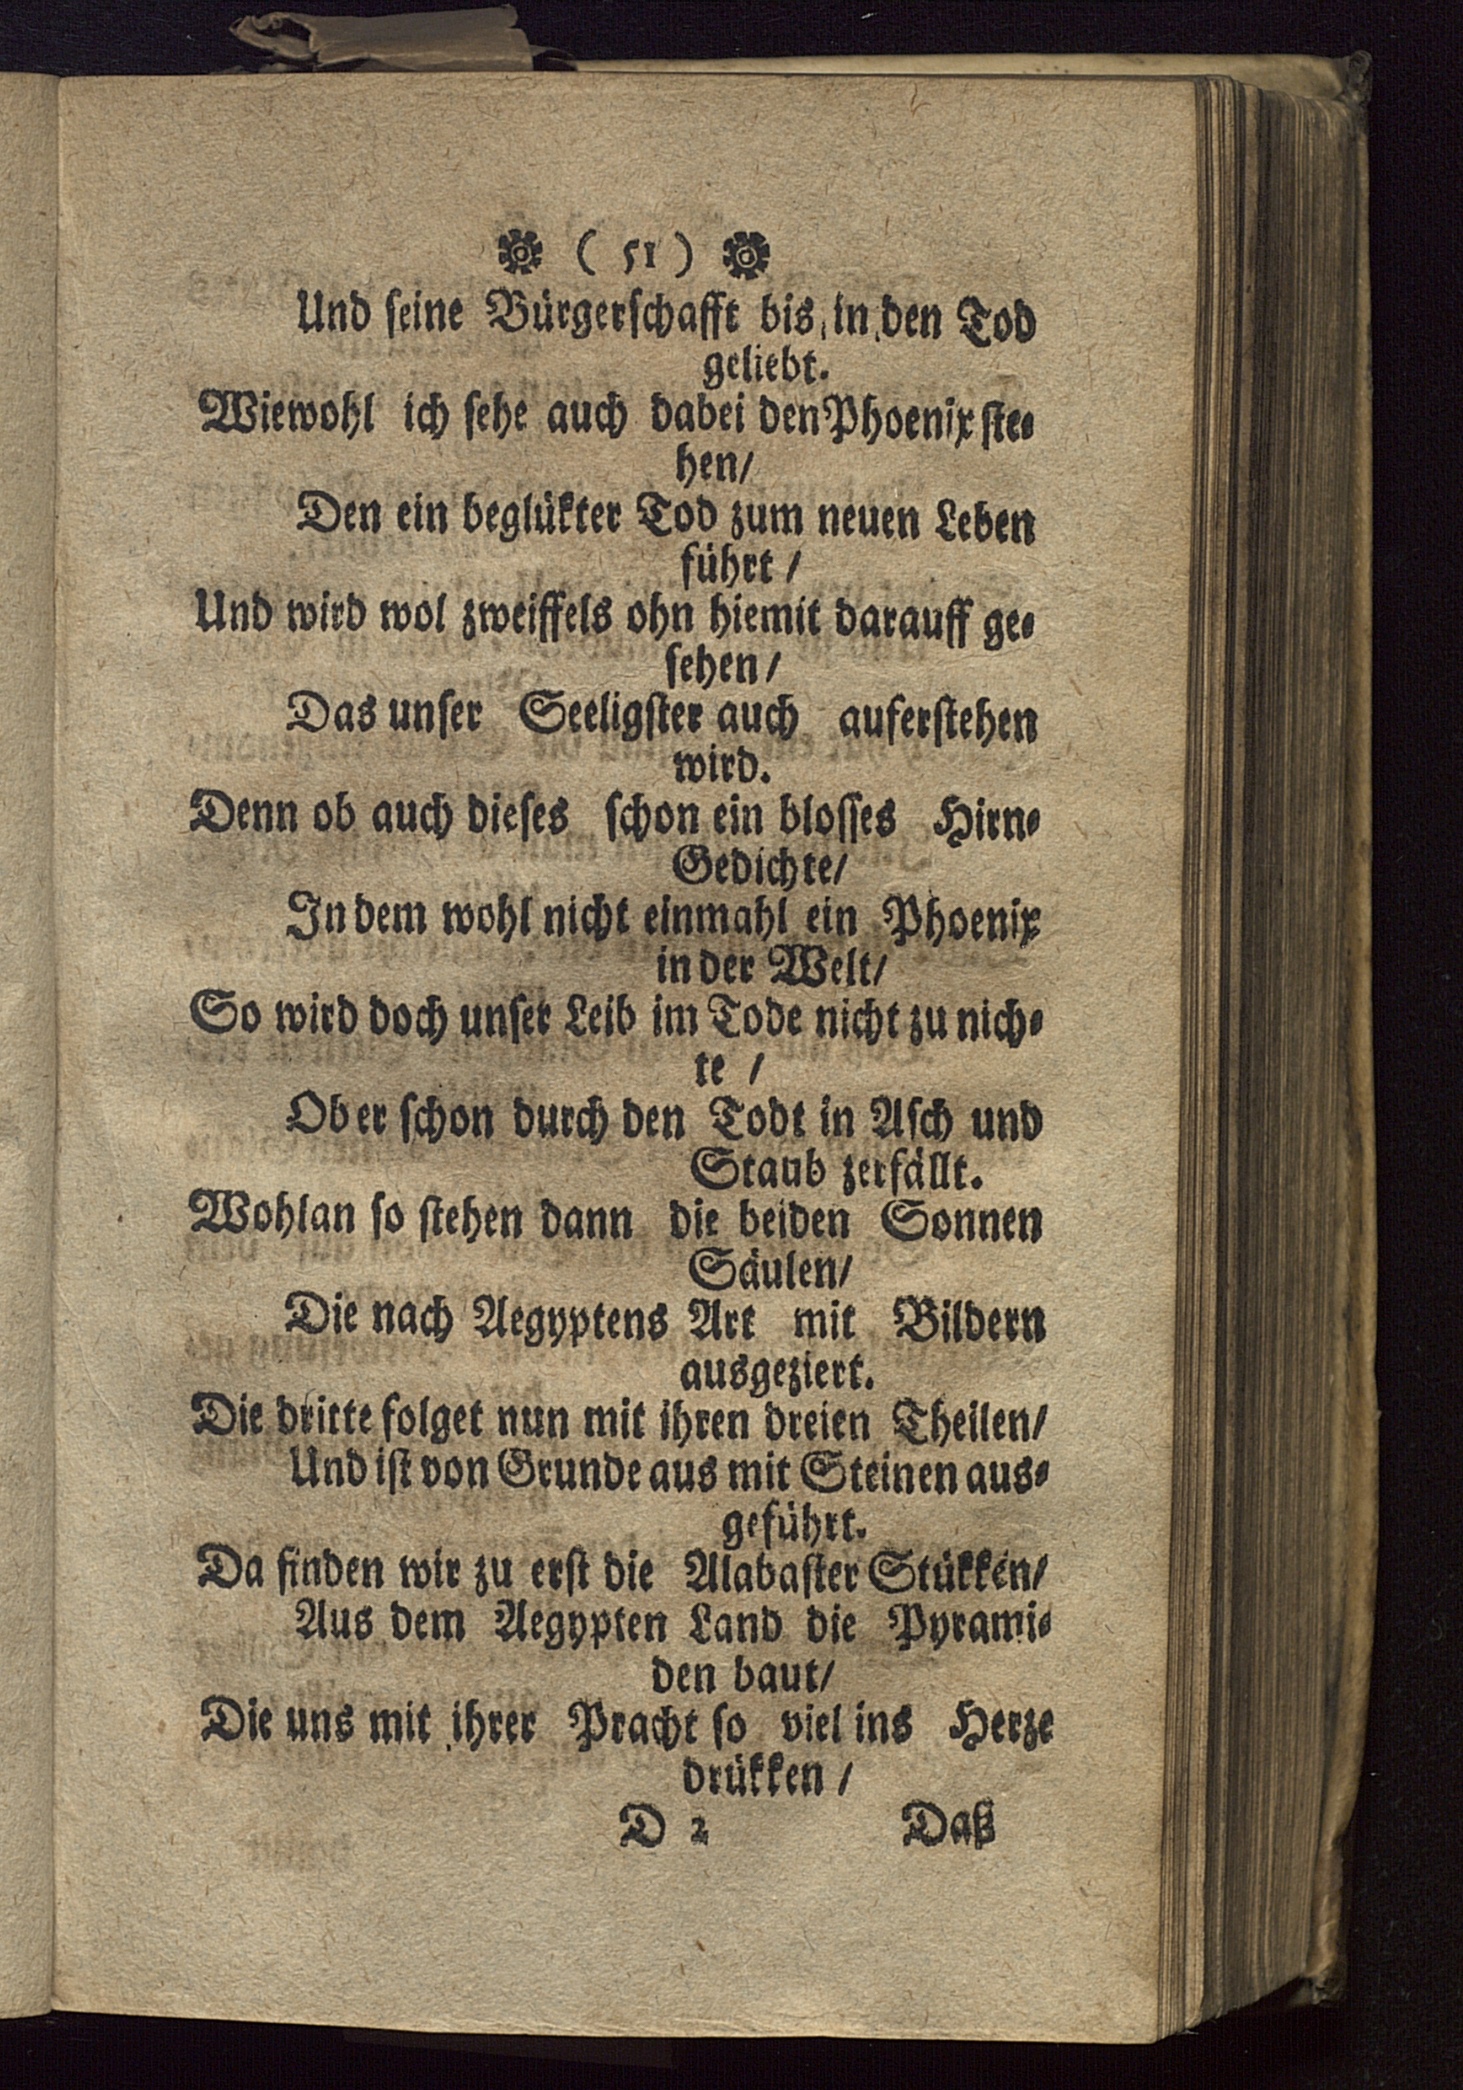 ( 51 )
Und seine Bürgerschafft bis in den Tod
geliebt.
Wiewohl ich sehe auch dabei den Phoenix ste-
hen/
Den ein beglükter Tod zum neuen Leben
führt /
Und wird wol zweiffels ohn hiemit darauff ge-
sehen/
Das unser Seeligster auch auferstehen
wird.
Denn ob auch dieses schon ein blosses Hirn-
Gedichte/
In dem wohl nicht einmahl ein Phoenix
in der Welt/
So wird doch unser Leib im Tode nicht zu nich-
te /
Ob er schon durch den Todt in Asch und
Staub zerfällt.
Wohlan so stehen dann die beiden Sonnen
Säulen/
Die nach Aegyptens Art mit Bildern
ausgeziert.
Die dritte folget nun mit ihren dreien Theilen/
Und ist von Grunde aus mit Steinen aus-
geführt.
Da finden wir zu erst die Alabaster Stükken/
Aus dem Aegypten Land die Pyrami-
den baut/
Die uns mit ihrer Pracht so viel ins Herze
drükken /
D 2 Daß